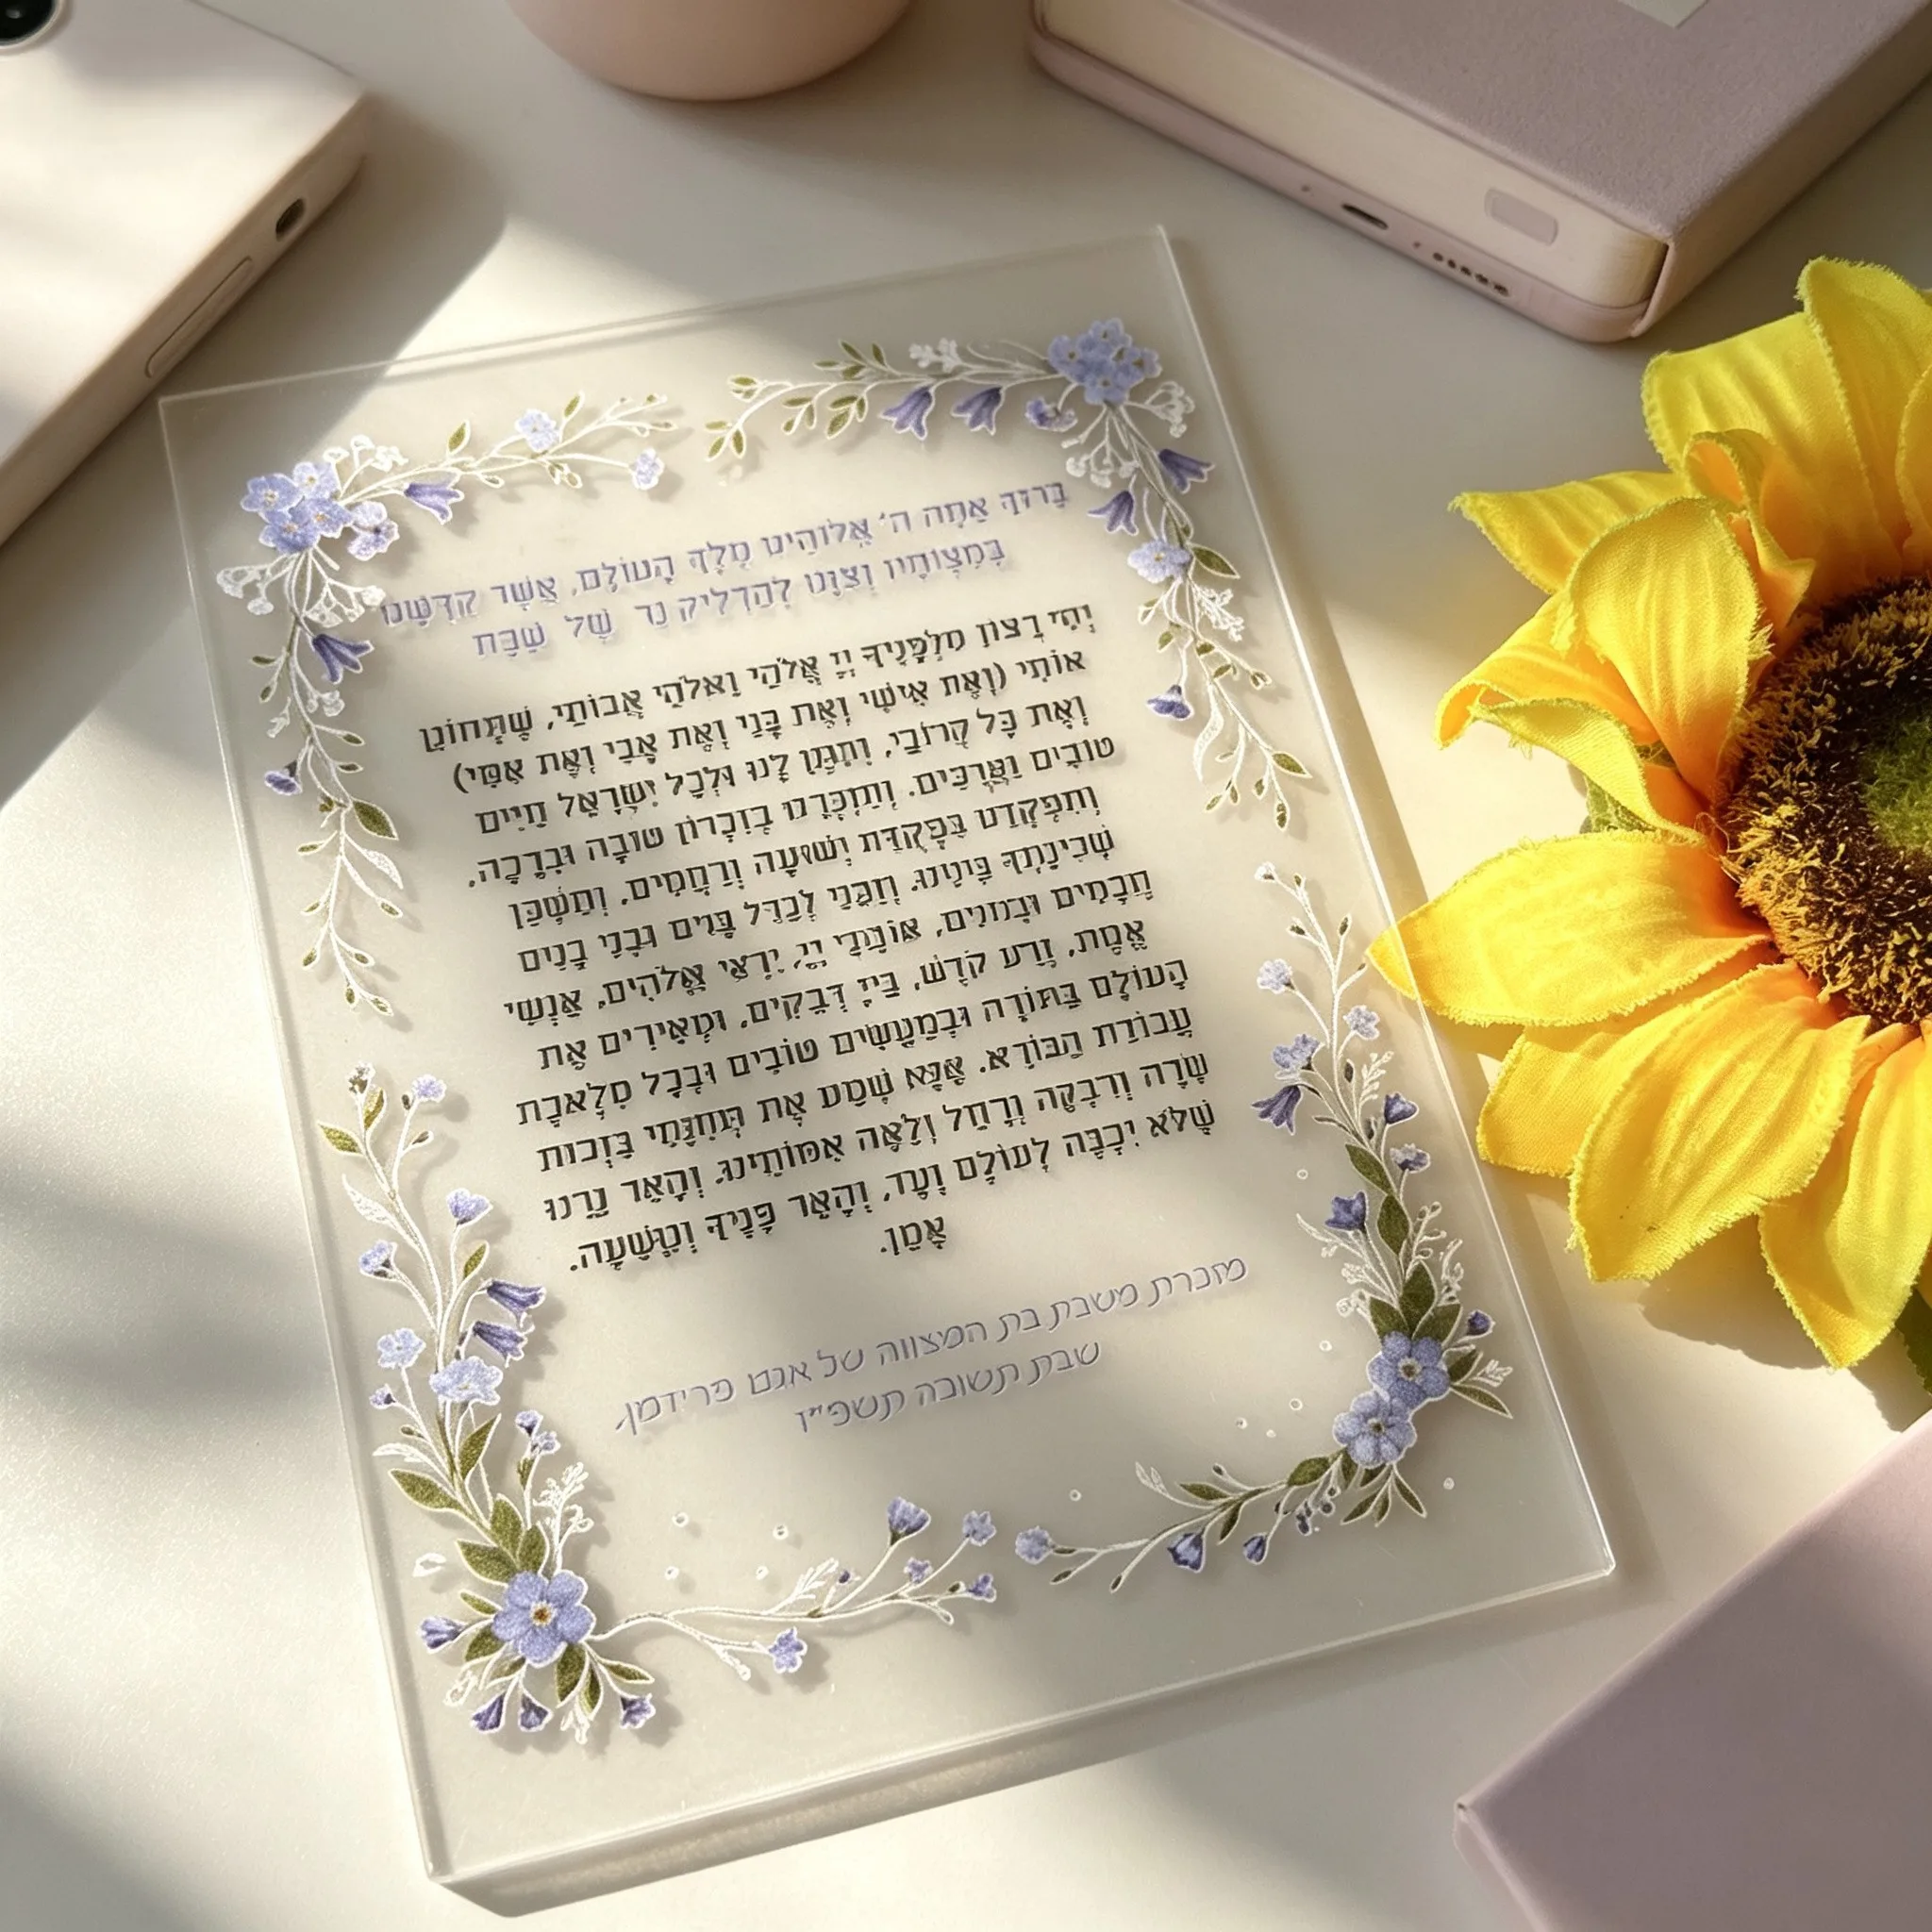 בָּרוּךְ אַתָּה ה׳ אֱלוֹהֵינוּ מֶלֶךְ הָעוֹלָם, אֲשֶׁר קִדְּשָׁנוּ
בְּמִצְוֹותָיו וְצִוָּנוּ לְהַדְלִיק נֵר שֶׁל שַׁבָּת
יְהִי רָצוֹן מִלְּפָנֶיךָ יְיָ אֱלֹהַי וֵאלֹהֵי אֲבוֹתַי, שֶׁתְּחוֹנֵן
אוֹתִי (וְאֶת אִישִׁי וְאֶת בָּנַי וְאֶת אָבִי וְאֶת אִמִּי)
וְאֶת כָּל קְרוֹבַי, וְתִתֵּן לָנוּ וּלְכָל יִשְׂרָאֵל חַיִּים
טוֹבִים וַאֲרֻכִּים. וְתִזְכְּרֵנוּ בְּזִכְרוֹן טוֹבָה וּבְרָכָה.
וְתִפְקְדֵנוּ בִּפְקֻדַּת יְשׁוּעָה וְרַחֲמִים. וְתַשְׁכֵּן
שְׁכִינָתְךָ בֵּינֵינוּ. וְזַכֵּנִי לְגַדֵּל בָּנִים וּבְנֵי בָנִים
חֲכָמִים וּנְבוֹנִים, אוֹהֲבֵי יְיָ, יִרְאֵי אֱלֹהִים, אַנְשֵׁי
אֱמֶת, זֶרַע קֹדֶשׁ, בַּייָ דְּבֵקִים, וּמְאִירִים אֶת
הָעוֹלָם בַּתּוֹרָה וּבְמַעֲשִׂים טוֹבִים וּבְכָל מְלֶאכֶת
עֲבוֹדַת הַבּוֹרֵא. אָנָּא שְׁמַע אֶת תְּחִנָּתִי בִּזְכוּת
שָׂרָה וְרִבְקָה וְרָחֵל וְלֵאָה אִמּוֹתֵינוּ. וְהָאֵר נֵרֵנוּ
שֶׁלֹּא יִכְבֶּה לְעוֹלָם וָעֶד, וְהָאֵר פָּנֶיךָ וְנִוָּשֵׁעָה.
אָמֵן.
מזכרת משבת בת המצווה של אגם פרידמן,
שבת תשובה תשפ״ז